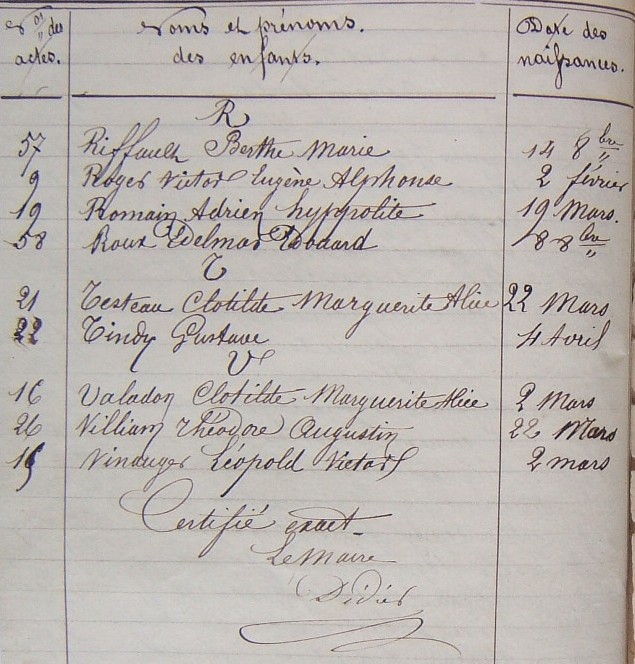 Nos des actes. Noms et prénoms. des enfants. Date des naissances.
R
57 Riffault Berthe Marie 14 8bre "
9 Roger Victor Eugène Alphonse 2 février
19 Romain Adrien hyppolite 19 Mars.
58 Roux Edelmar Edouard 18 8bre "
T
21 Testeau Clotilde Marguerite Alice 22 Mars
22 Tindy Gustave 4 Avril
V
16 Valadon Clotilde Marguerite Alice 2 Mars
26 Villiam Théodore Augustin 22 Mars
15 Vinauger Léopold Victor 2 mars
Certifié exact
Le Maire
Didier